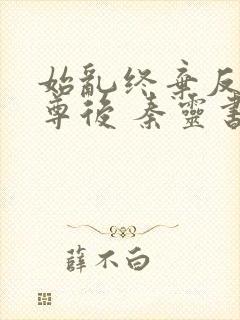 始亂终棄反
尊後 秦靈書
薛不白